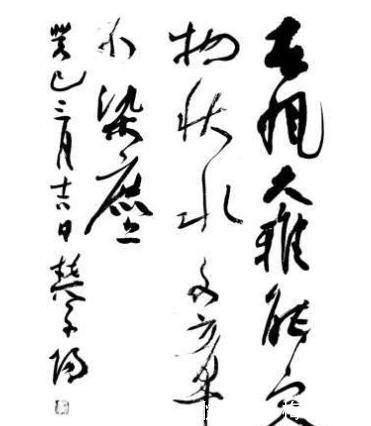 春風大雅能容
物秋水文章
不染塵
癸巳三月 日